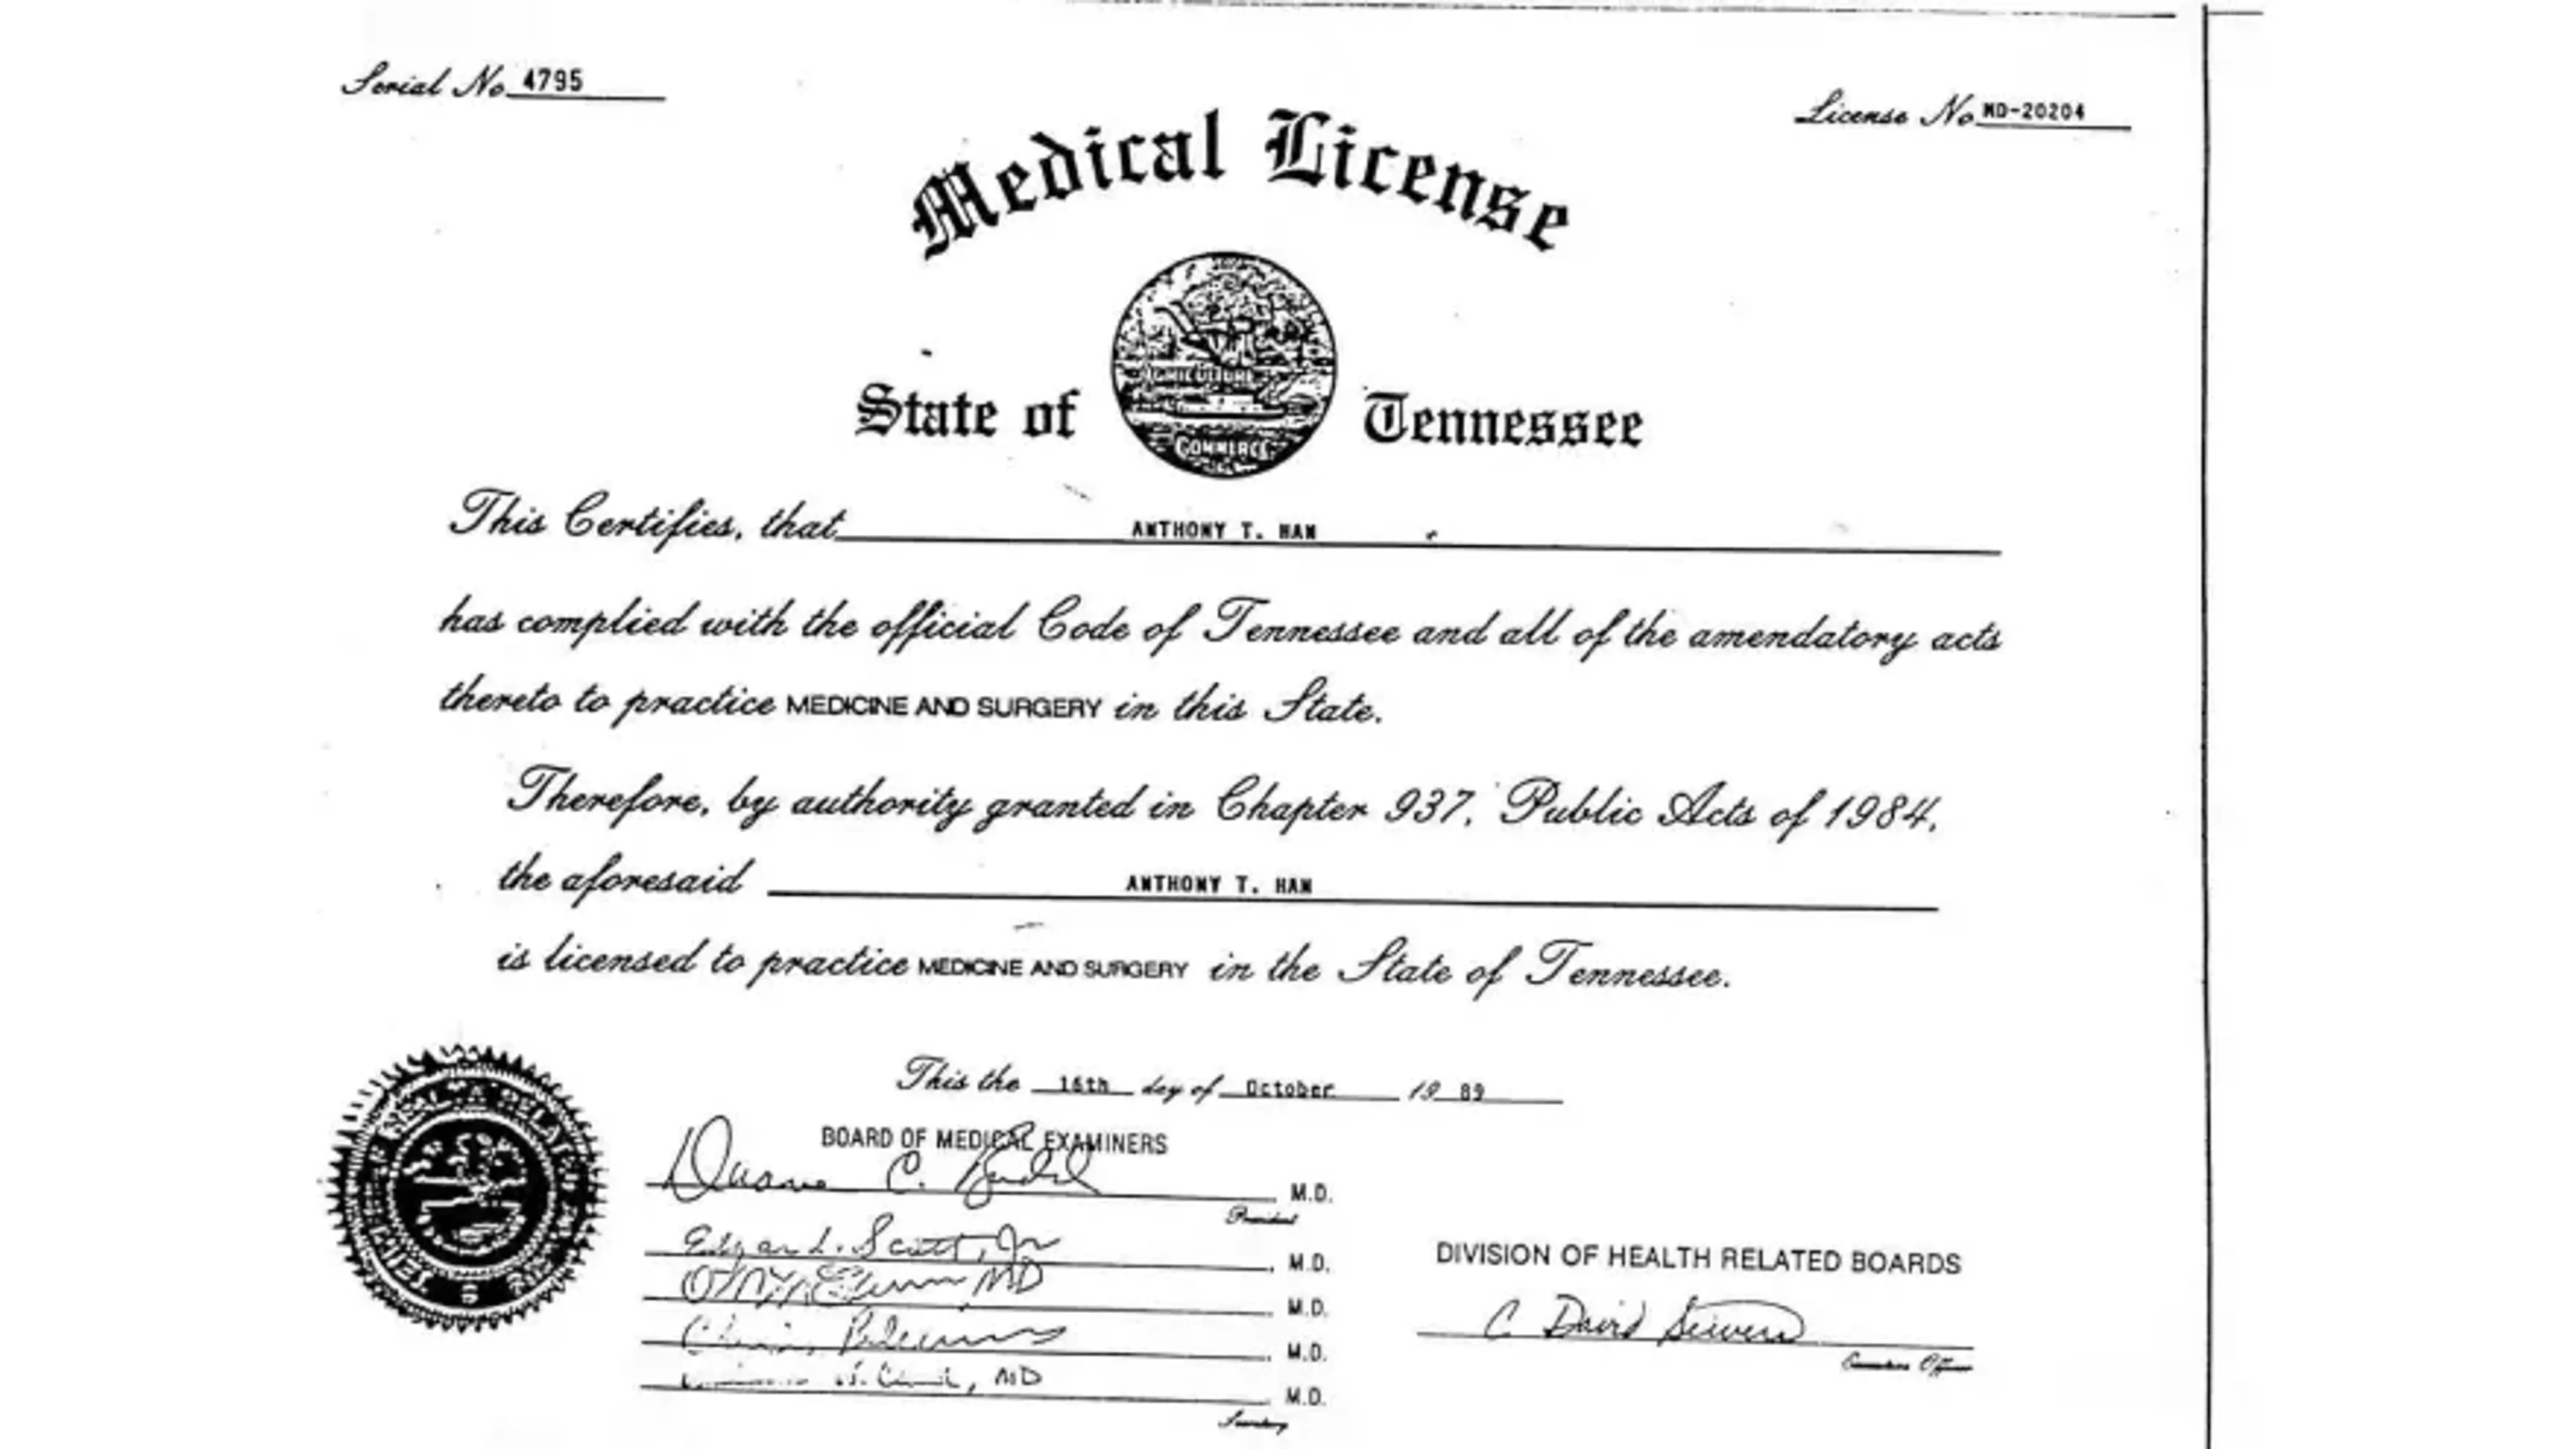 Serial No 4795
License No MD-20204
Medical License
State of Tennessee
AGRICULTURE
COMMERCE
This Certifies, that ANTHONY T. HAN
has complied with the official Code of Tennessee and all of the amendatory acts
thereto to practice MEDICINE AND SURGERY in this State.
Therefore, by authority granted in Chapter 937, Public Acts of 1984,
the aforesaid ANTHONY T. HAN
is licensed to practice MEDICINE AND SURGERY in the State of Tennessee.
This the 16th day of October 19 89
BOARD OF MEDICAL EXAMINERS
Duane C. M.D.
President
Edgar L. Scott, Jr M.D.
MD M.D.
DIVISION OF HEALTH RELATED BOARDS
M.D.
C David
MD M.D.
Executive Officer
Secretary